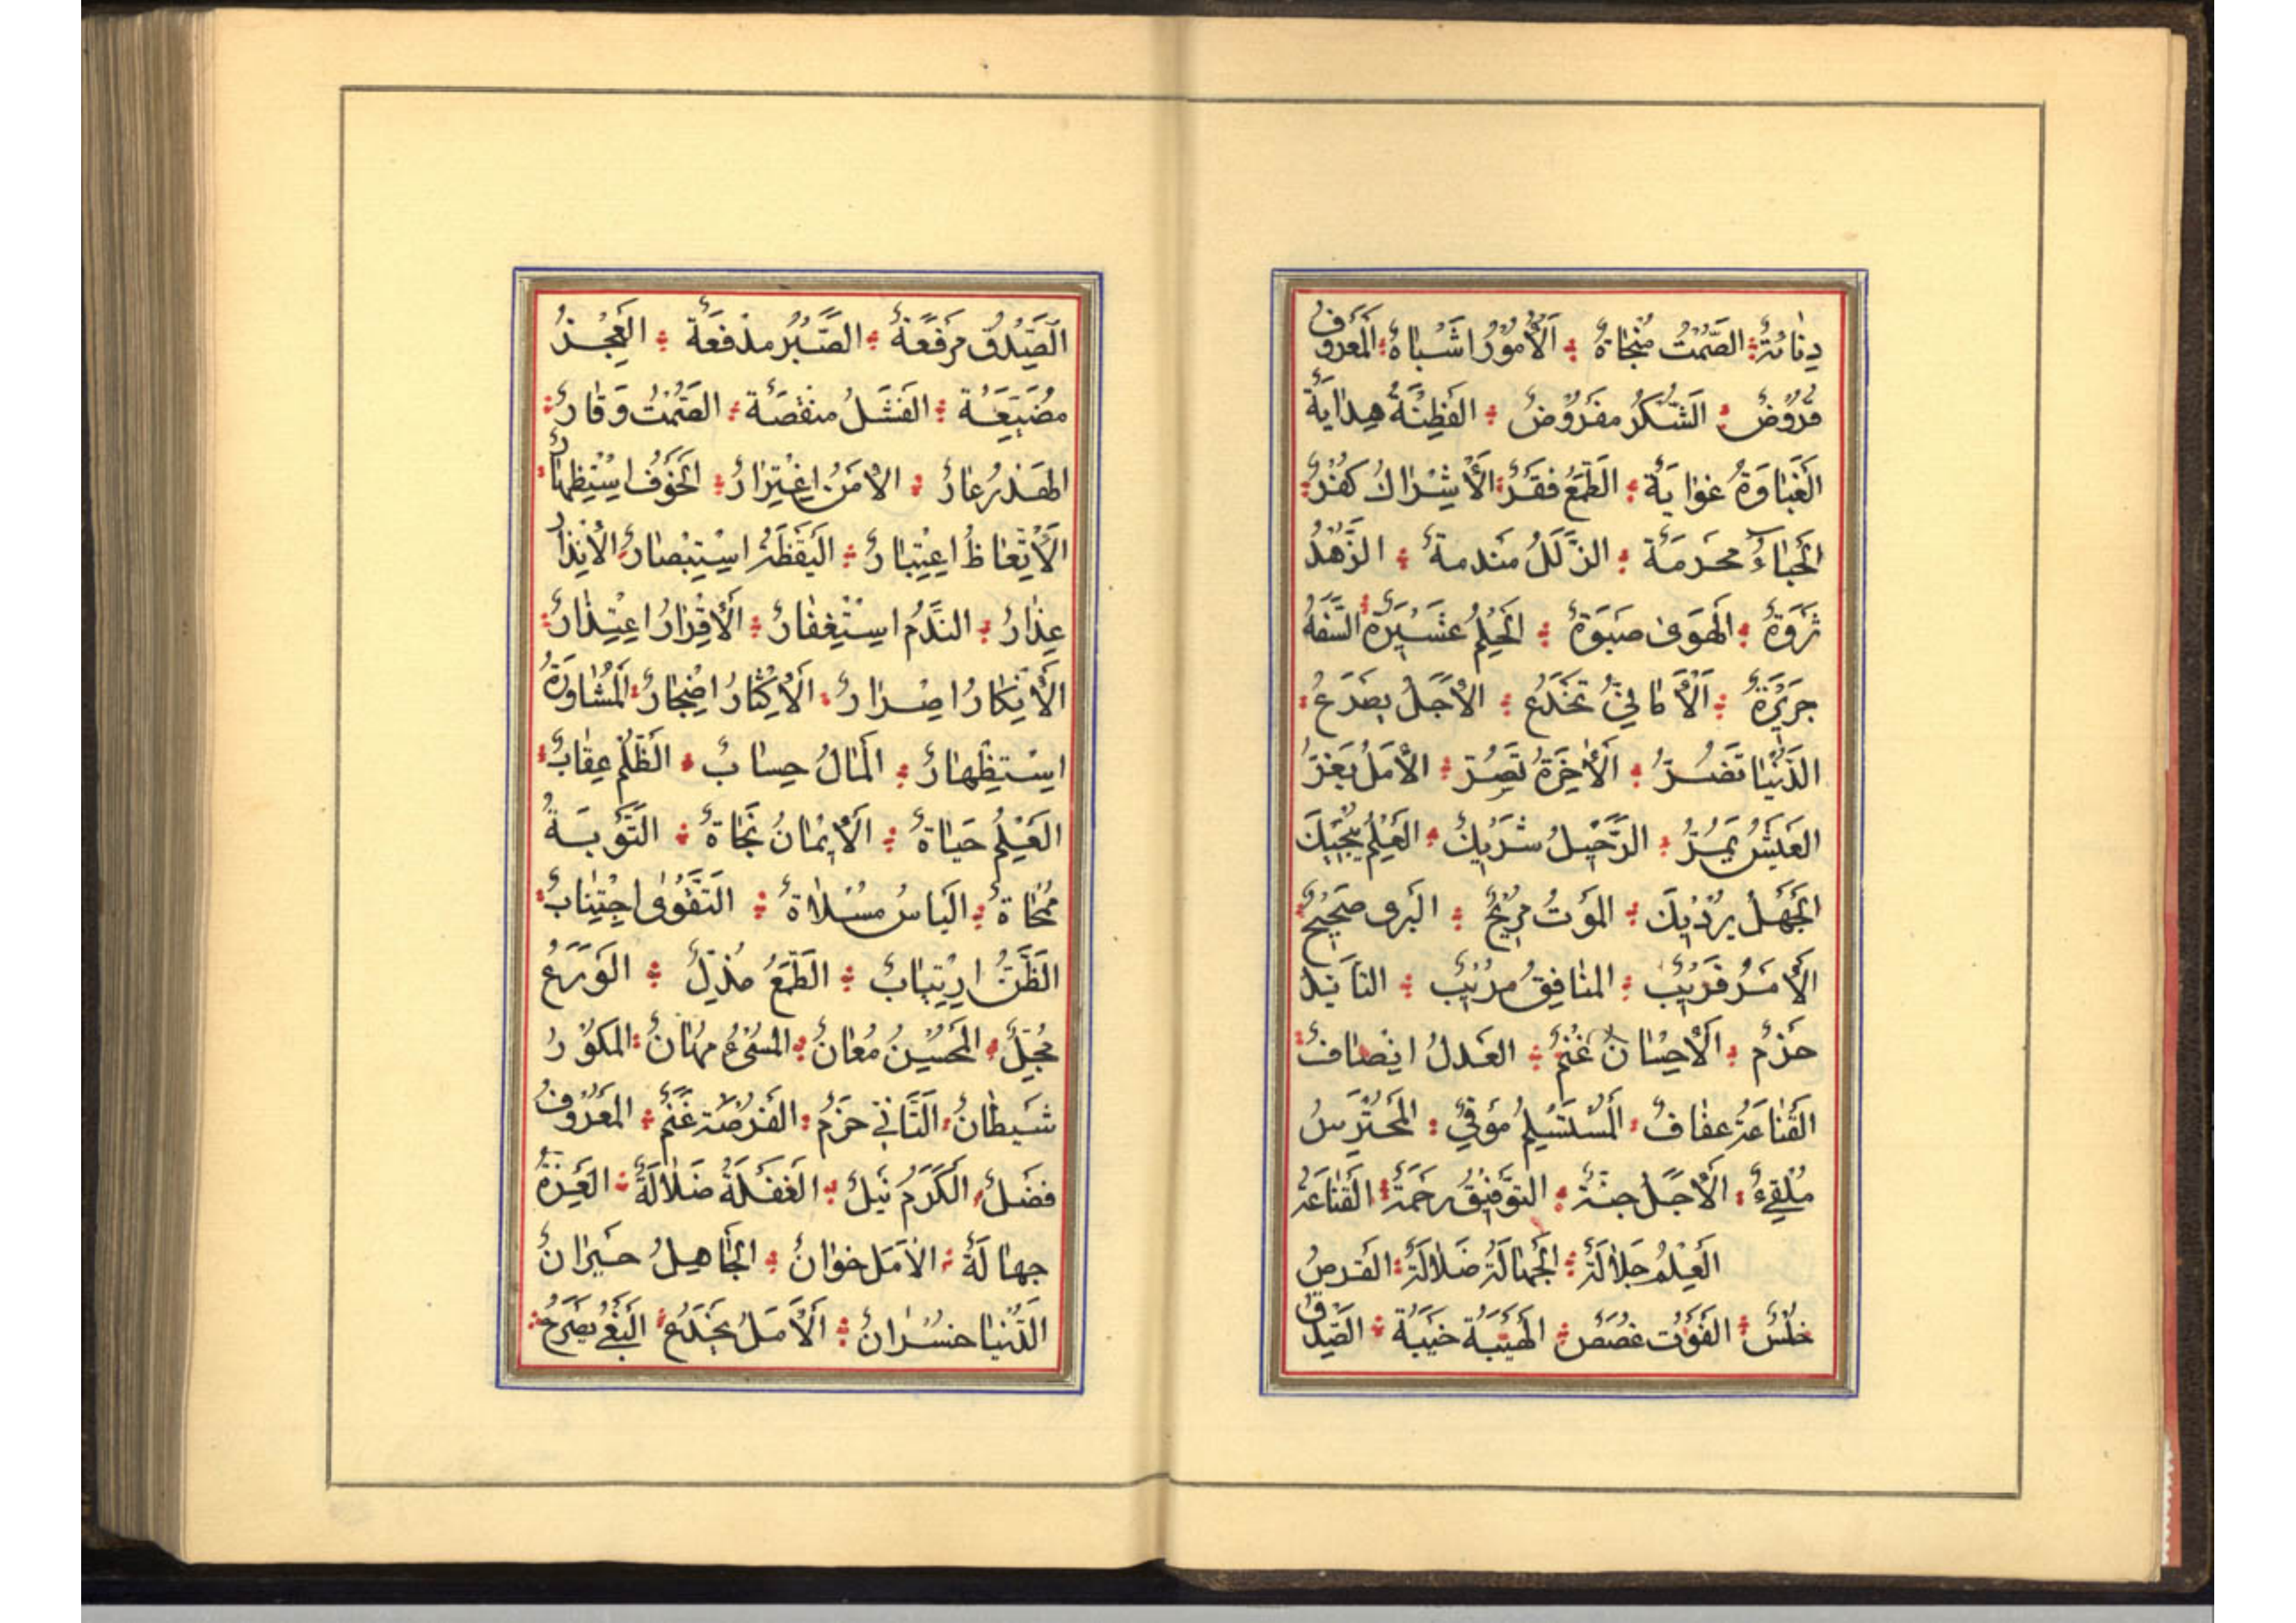 دِنائَةٌ الصَّمْتُ مَنْجاةٌ الْأُمُورُ اَشْباهٌ الْمَعْرُوفُ
قُرُوضٌ الشُّكْرُ مَفْرُوضٌ الفِطْنَةُ هِدايَةٌ
الغَباوَةُ غَوايَةٌ الطَّمَعُ فَقْرٌ الْأِشْراكُ كُفْرٌ
الحَياءُ مَحْرَمَةٌ الزَّلَلُ مَنْدَمَةٌ الزُّهْدُ
ثَرْوَةٌ الهَوىٰ صَبْوَةٌ الحِلْمُ عَشيرَةٌ السَّفَهُ
جَرِيرَةٌ الْأَمانِيُّ تَخْدَعُ الْأَجَلُ يَصْرَعُ
الدُّنْيا تَضُرُّ الْأخِرَةُ تَسُرُّ الْأَمَلُ يَغُرُّ
العَيْشُ يَمُرُّ الرَّحيلُ شَرِيكٌ العِلْمُ يُنْجِيكَ
الجَهْلُ يُرْدِيكَ المَوْتُ مُرِيحٌ البَرى صَحِيحٌ
الْأَمْرُ قَرِيبٌ المُنافِقُ مُرِيبٌ التأَيُّدُ
حَزْمٌ الْأِحْسانُ غُنْمٌ العَدْلُ اِنْصافٌ
القَناعَةُ عَفافٌ المُسْتَسْلِمُ مُوَقّيٰ المُحْتَرِسُ
مُلْقِىءٌ الْأَجَلُ جُنَّةٌ التَّوْفيقُ رَحْمَةٌ القَناعَةُ
العِلْمُ جَلالَةٌ الجَهالَةُ ضَلالَةٌ الفُرَصُ
خُلَسٌ الفَوْتُ غُصَصٌ الهَيْبَةُ خَيْبَةٌ الصِّدْقُ
الصِّدْقُ مَرْفَعَةٌ الصَّبْرُ مَدْفَعَةٌ العَجْزُ
مَضْيَعَةٌ الفَشَلُ مَنْقَصَةٌ الصَّمْتُ وَقارٌ
الهَذْرُ عارٌ الْأَمْنُ اِغْتِرارٌ الخَوْفُ اسْتِظْهارٌ
الْأِتِّعاظُ اِعْتِبارٌ اليَقْظَةُ اسْتِبْصارٌ الْأِنْذارُ
عِذارٌ النَّدَمُ اسْتِغْفارٌ الْأِقْرارُ اعْتِذارٌ
الْأِنْكارُ اِصْرارٌ الْأِكْثارُ اِضْجارٌ المُشاوَرَةُ
اسْتِظْهارٌ المالُ حِسابٌ الظُّلْمُ عِقابٌ
العِلْمُ حَياةٌ الْأِيْمانُ نَجاةٌ التَّوْبَةُ
مُنْجاةٌ اليَاسُ مَسْلاةٌ التَّقْوىٰ اجْتِنابٌ
الظَّنُّ ارْتِيابٌ الطَّمَعُ مُذِلٌّ الوَرَعُ
مُجِلٌّ المُحْسِنُ مُعانٌ المُسْىءُ مُهانٌ المَكْوُرُ
شَيْطانٌ التَّأَنّي حَزْمٌ الفُرْصَةُ غُنْمٌ المَعْرُوفُ
فَضْلٌ الْكَرَمُ نُبْلٌ الغَفْلَةُ ضَلالَةٌ العِزَّةُ
جَهالَةٌ الْأَمَلُ خَوانٌ الجاهِلُ حَيْرانٌ
الدُّنْيا خُسْرانٌ الْأَمَلُ يَخْدَعُ البَغْىُ يَصْرَعُ